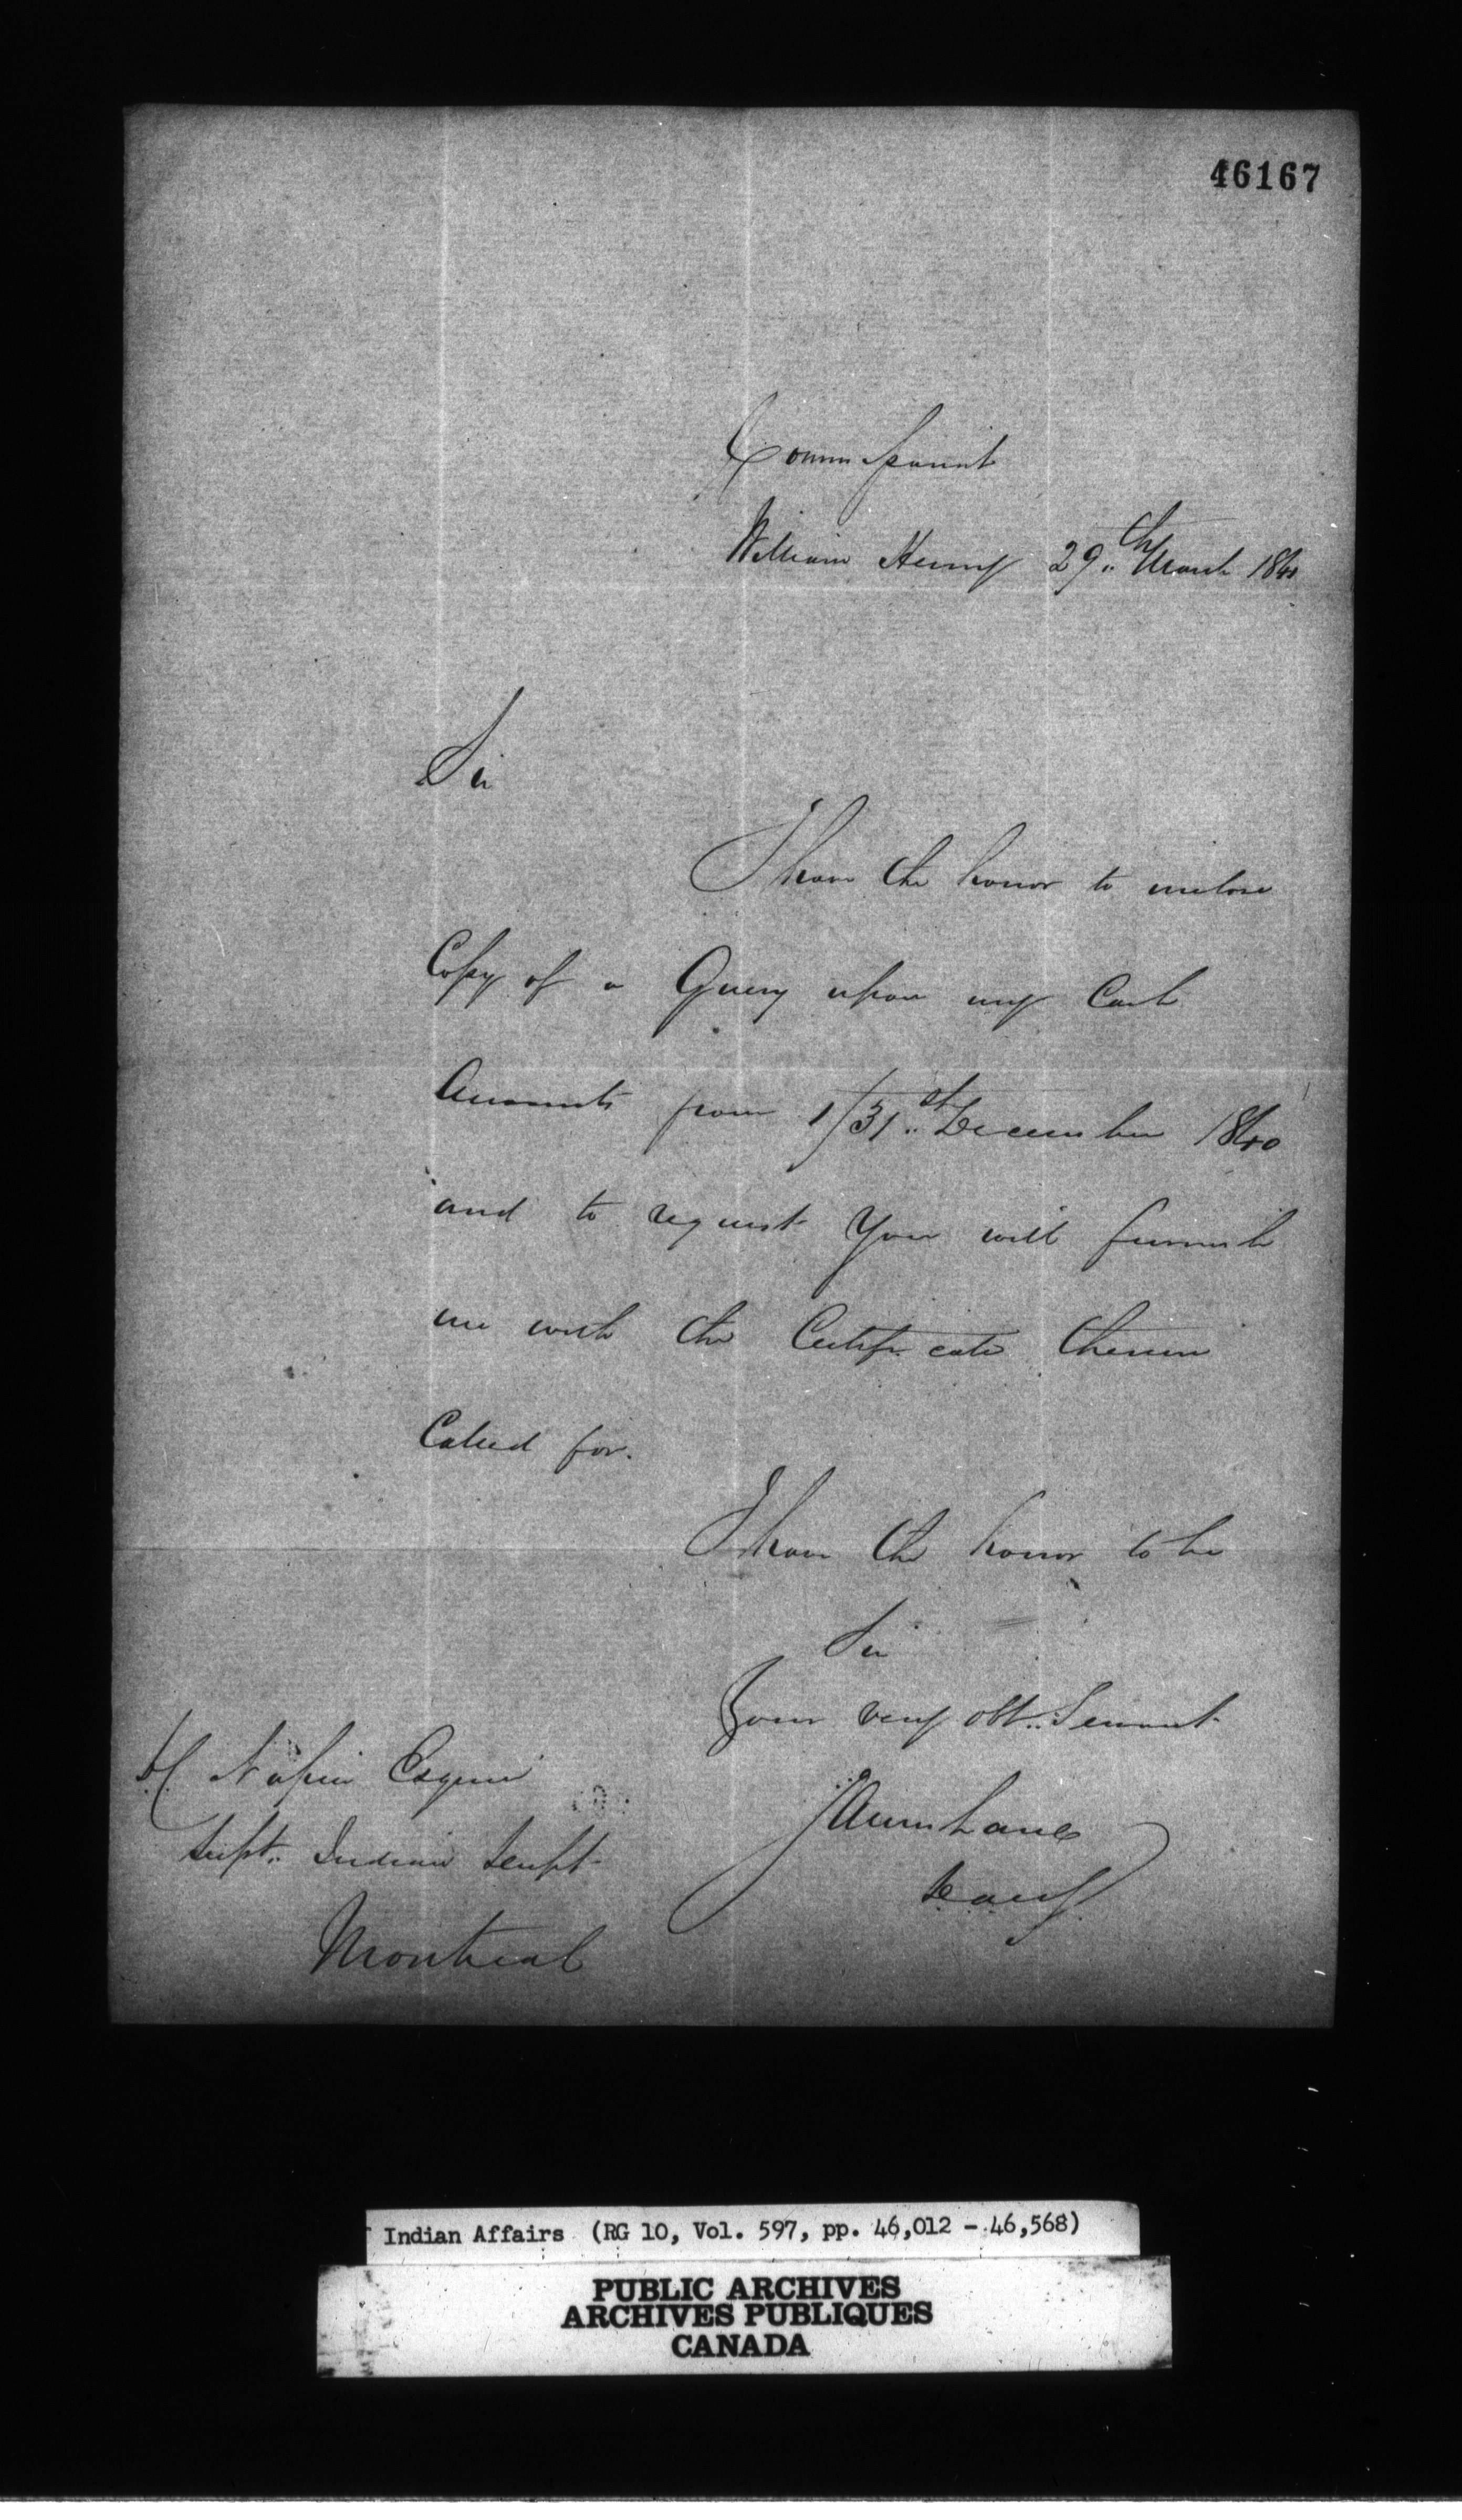 46167
Commissariat
William Henry 29th March 1841
Sir
I have the honor to inclose
Copy of a Query upon my Cash
Accounts from 1/31st December 1840
and to request You will furnish
me with the Certificate therein
Called for.
I have the honor to be
Sir
Your very obt. Servant
D. C. Napier Esquire
Supt. Indian Dept
Montreal
Indian Affairs (RG 10, Vol. 597, pp. 46,012 - 46,568)
PUBLIC ARCHIVES
ARCHIVES PUBLIQUES
CANADA